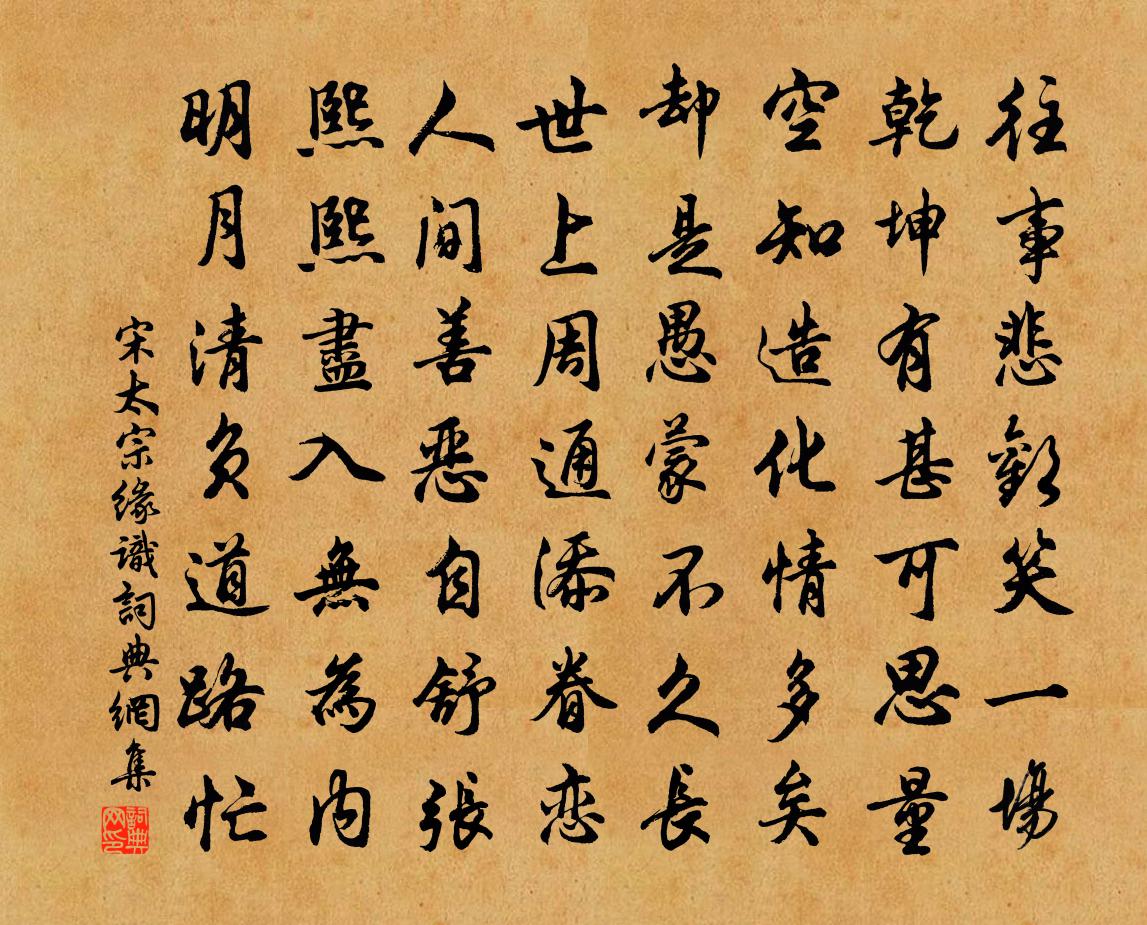 往事悲歡笑一場
乾坤有甚可思量
空知造化情多矣
却是愚蒙不久長
世上周通添眷恋
人间善惡自舒張
熙熙盡入無為内
明月清負道路忙
宋太宗緣識詞典網集
詞典网印